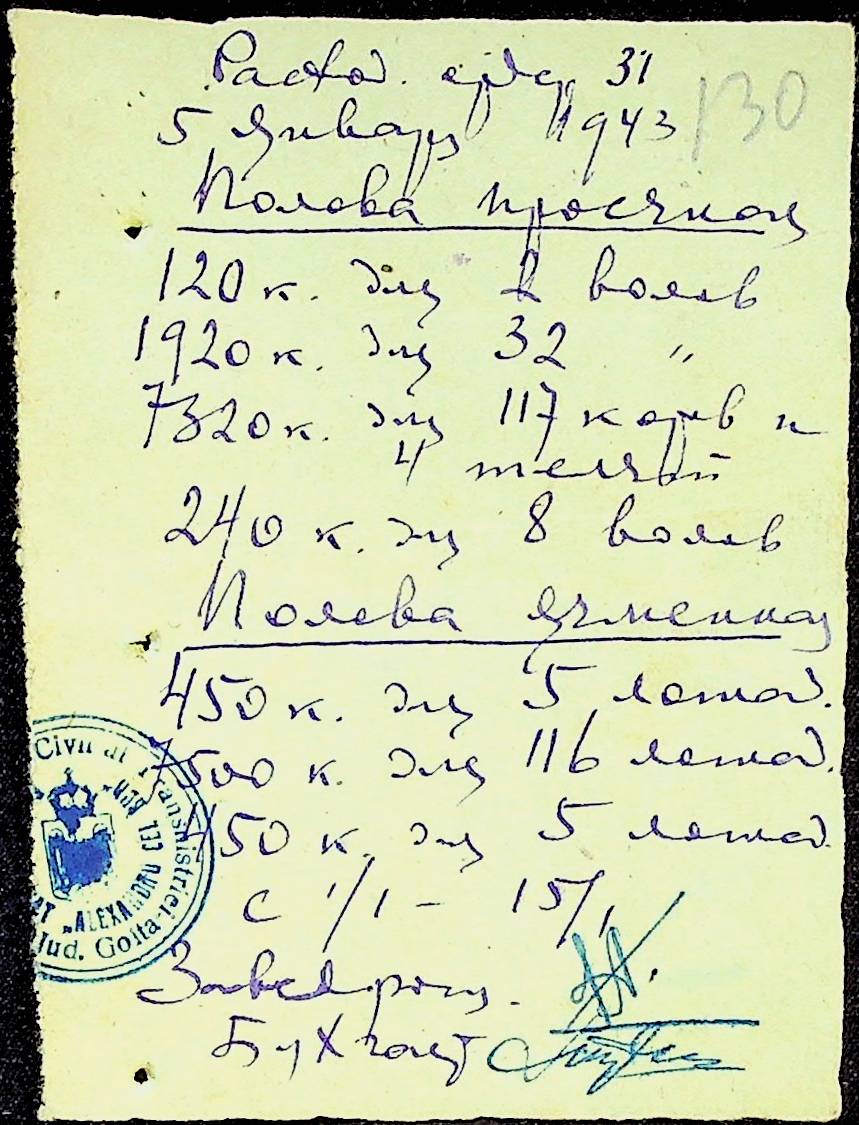 Расход. ордер 31
130
5 Января 1943
Полова просяная
120 к. для 2 волов
1920 к. для 32 "
7320 к. для 117 коров и
4 телят
240 к. для 8 волов
Полова ячменная
450 к. для 5 лошад.
7500 к. для 116 лошад.
450 к. для 5 лошад.
с 1/1 - 15/1
Civil al Transnistriei
"ALEXANDRU CEL BUN"
Jud. Golta
Заведующ.
Бухгалт